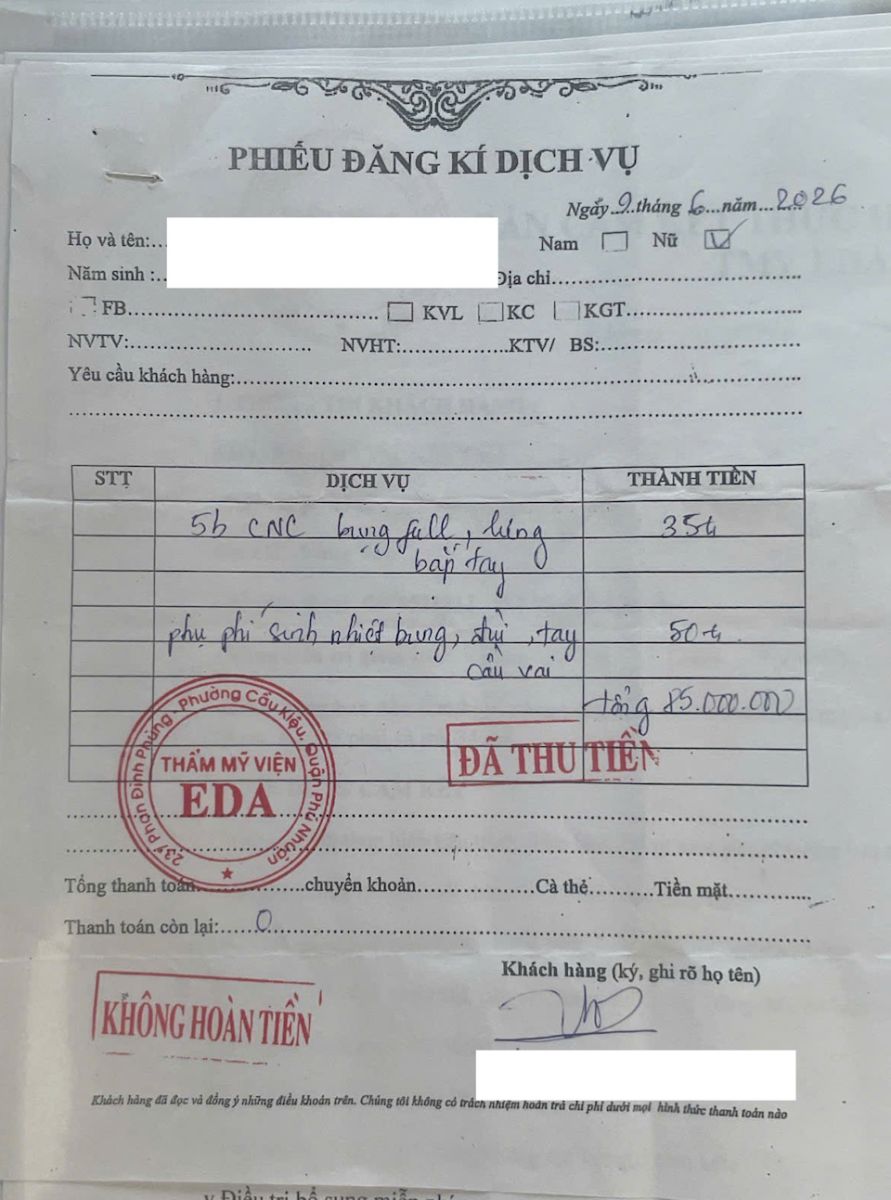 PHIẾU ĐĂNG KÍ DỊCH VỤ
Ngày 9 tháng 6 năm 2026
Họ và tên:
Nam Nữ
Năm sinh :
Địa chỉ
FB KVL KC KGT
NVTV: NVHT: KTV/ BS:
Yêu cầu khách hàng:
STT DỊCH VỤ THÀNH TIỀN
5b CNC bụng full, lưng 35tr
bắp tay
phụ phí sinh nhiệt bụng, đùi, tay 50tr
cầu vai
tổng 85.000.000
ĐÃ THU TIỀN
237 Phan Đình Phùng, Phường Cầu Kiệu, Quận Phú Nhuận
THẨM MỸ VIỆN
EDA
Tổng thanh toán chuyển khoản Cà thẻ Tiền mặt
Thanh toán còn lại: 0
Khách hàng (ký, ghi rõ họ tên)
KHÔNG HOÀN TIỀN
Khách hàng đã đọc và đồng ý những điều khoản trên. Chúng tôi không có trách nhiệm hoàn trả chi phí dưới mọi hình thức thanh toán nào